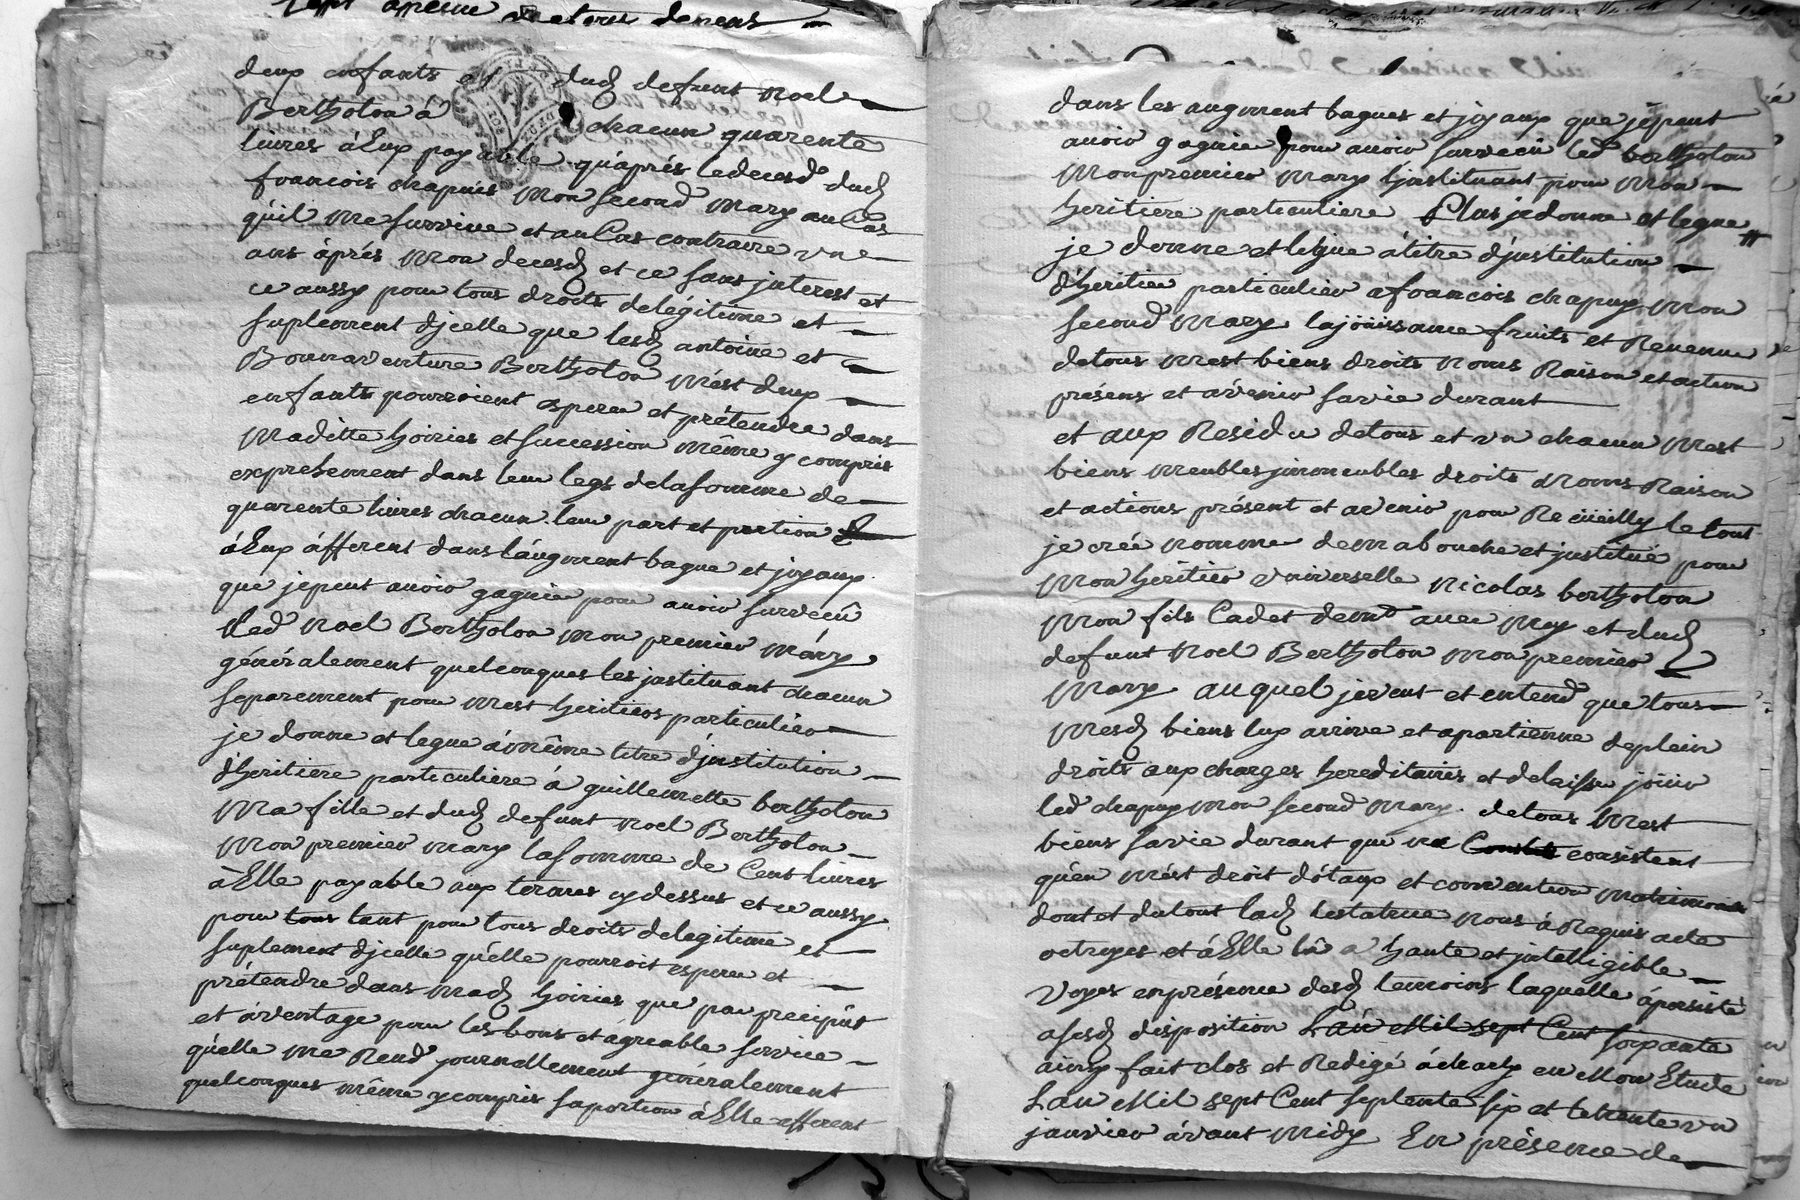 deux enfants et dud defunt Noel
Bertholon à chacun quarente
livres à Eux payable qu'aprés le deces dud
francois chapuis mon second mary au Cas
qu'il me survive et au Cas contraire une
ans àprés mon decesd et ce sans jnterest et
ce aussy pour tous droits delégitime et
suplement djcelle que lesd antoine et
Bonnaventure Bertholon mést deux
enfants pourroient esperer et prétendre dans
maditte hoiries et succession même y compris
expressement dans leur legs delasomme de
quarente livres chacun leur part et portion
à Eux áfferent dans láugment bague et joyaux
que jepeut avoir gagniee pour avoir survecû
Led Noel Bertholon mon premier máry
généralement quelconques les jnstituant chacun
separement pour mest heritiers particuliér
je donne et legue á même titre d'jnstitution
dheritiere particuliere à guillemette bertholon
Ma fille et dud defunt Noel Bertholon
Mon premier mary lasomme de Cent livres
à Elle payable aux termes cy dessus et ce aussy
pour tous tant pour tous droits delegitime et
suplement djcelle qu'elle pourroit esperer et
prétendre dans mad hoiries que par precipût
et áventage pour les bons et ágreable service
qu'elle me Rend journellement généralement
quelconques même ycompris saportion à Elle afferent
dans les augment bagues et joyaux que jepeut
avoir gagniee pour avoir survecu led bertholon
Mon premier mary L'jnstituant pour mon
heritiere particuliere Plus je donne et legue
je donne et légue à titre d'jnstitution
dheritier particulier a francois chapuy mon
second mary lajoüissance fruits et Revenue
detous mest biens droits noms Raison et action
présens et avenir savie durant
et aux Residu detous et un chacun mest
biens meubles jmmeubles droits noms Raison
et actions présent et avenir pour Recüeilly le tout
je crée nomme demabouche et jnstitué pour
Mon heritier universelle Nicolas bertholon
Mon fils Cadet demt avec moy et dud
defunt Noel Bertholon mon premier
Mary auquel jeveut et entend que tous
Mesd biens luy arrive et apartienne deplein
droits aux charges hereditaires et delaisser joüir
led chapuy mon second mary detous mest
biens savie durant que ne consistent
qu'en mést droit dótaux et convention matrimon
dont et dutout lad testatrice nous à Requis acte
octroyes et à Elle lû a haute et jntelligible
Voyes enprésence desd temoins laquelle á persisté
asesd disposition Lan Mil sept Cent soixante
ainsy fait clos et Redigé à charly en Mon Etude
Lan Mil sept Cent septente six et letrente un
janvier ávant midy En présence de